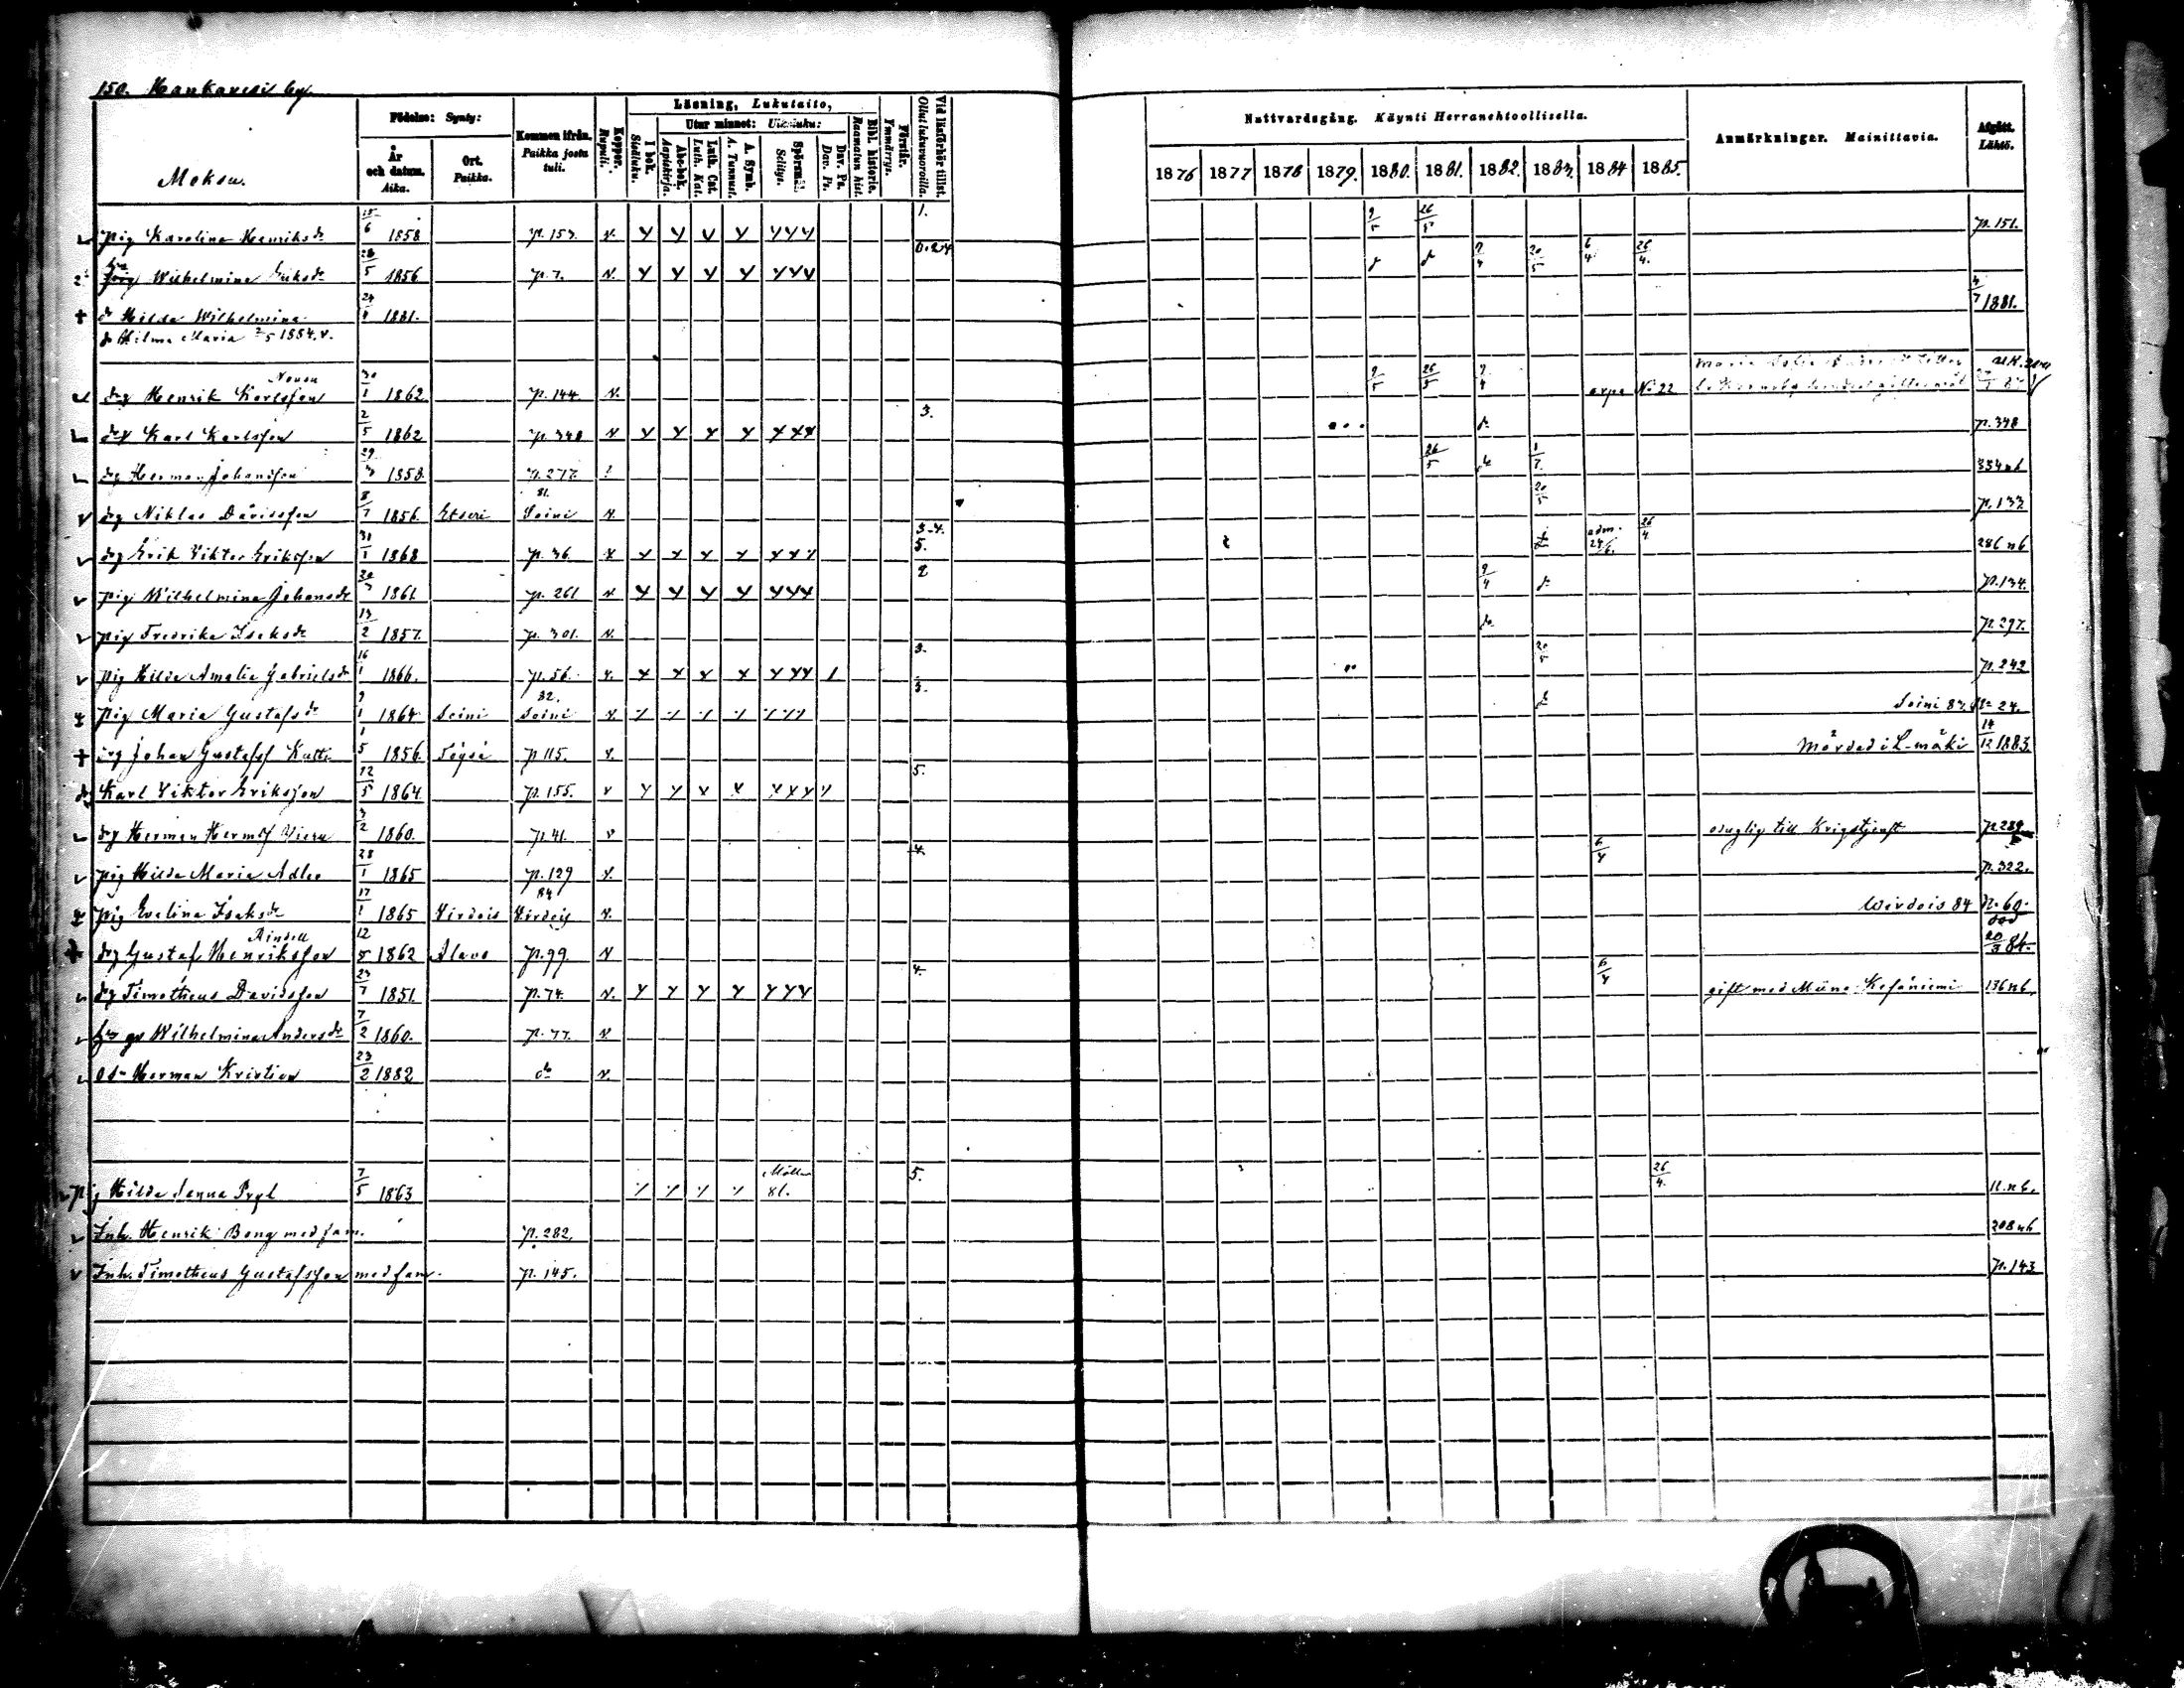 150. Hankavesi by.
Moksu.
Födelse: Synty:
År och datum. Aika.
Ort. Paikka.
Kommen ifrån. Paikka josta tuli.
Koppor. Rupuli.
Läsning, Lukutaito,
I bok. Sisäluku.
Utur minnet: Ulkoluku:
Abc-bok. Aapiskirja.
Luth. Cat. Luth. Kat.
A. Symb. A. Tunnust.
Spörsmål. Selitys.
Dav. Ps. Dav. Ps.
Bibl. historie. Raamatun hist.
Förstår. Ymmärrys.
Vid läsförhör tillst. Ollut lukuvuoroilla.
Nattvardsgång. Käynti Herranehtoollisella.
1876 1877 1878 1879. 1880. 1881. 1882. 1883. 1884 1885.
Anmärkningar. Mainittavia.
Afgått. Lähtö.
pig Karolina Henriksdr 18/6 1858 p. 153. v. 1. 9/5 26/5 p. 151.
Wilhelmina Eriksdr 28/5 1856 p. 7. v. 0.2.4 9/4 20/5 6/4 26/4.
+ d Hilda Wilhelmina 24/4 1881. 4/7 1881.
d Hilma Maria 2/5 1884. v.
drg Henrik Karlsson 30/1 1862 p. 144. v. 9/5 26/5 9/4 No 22
drg Karl Karlsson 2/5 1862 p. 348 v 3. p. 348
drg Herman Johansson 29/3 1858. p. 277. 26/5 1/7. 334 nb
drg Niklas Davisson 8/7 1856. Etseri Soini 81. v. 20/5 p. 133
drg Erik Viktor Eriksson 31/1 1868 p. 36 v 3-4. 5. adm. 24/6. 26/4 286 nb
pig Wilhelmina Johansdr 20/3 1861 p. 261 v 2 9/4 p. 134.
pig Fredrika Isaksdr 13/2 1857. p. 301. v. p. 297.
pig Hilda Amalia Gabrielsdr 16/1 1866. p. 56. v. 3. 20/5 p. 242
pig Maria Gustafsdr 9/1 1864 Soini Soini 82. v. 3. Soini 83. No 24.
+ drg Johan Gustafss Katti 1/5 1856. Töysä p. 115. v. Mördad i L-mäki 14/12 1883
drg Karl Viktor Eriksson 12/5 1864 p. 155. v 5.
drg Herman Hermss 3/2 1860. p. 41. v oduglig till Krigstjenst p. 289
pig Hilda Maria Adler 28/1 1865 p. 129 v. 4. 6/4 p. 322.
pig Evelina Isaksdr 17/1 1865 Virdois Virdois 84 v. Wirdois 84 No. 60.
+ drg Gustaf Henriksson 12/5 1862 Alavo p. 99 v död 20/3 84.
drg Timotheus Davidsson 23/7 1851. p. 74. v. 4. 6/4 gift med Miina 136 nb.
Wilhelmina Andersdr 7/2 1860. p. 77. v.
Herman Kristian 23/2 1882 do v.
pig Hilda Sanna 7/5 1863 81. 5. 26/4. 11. nb.
Inh. Henrik Bong med fam. p. 282. 208 nb
Inh. Timotheus Gustafsson med fam. p. 145. p. 143